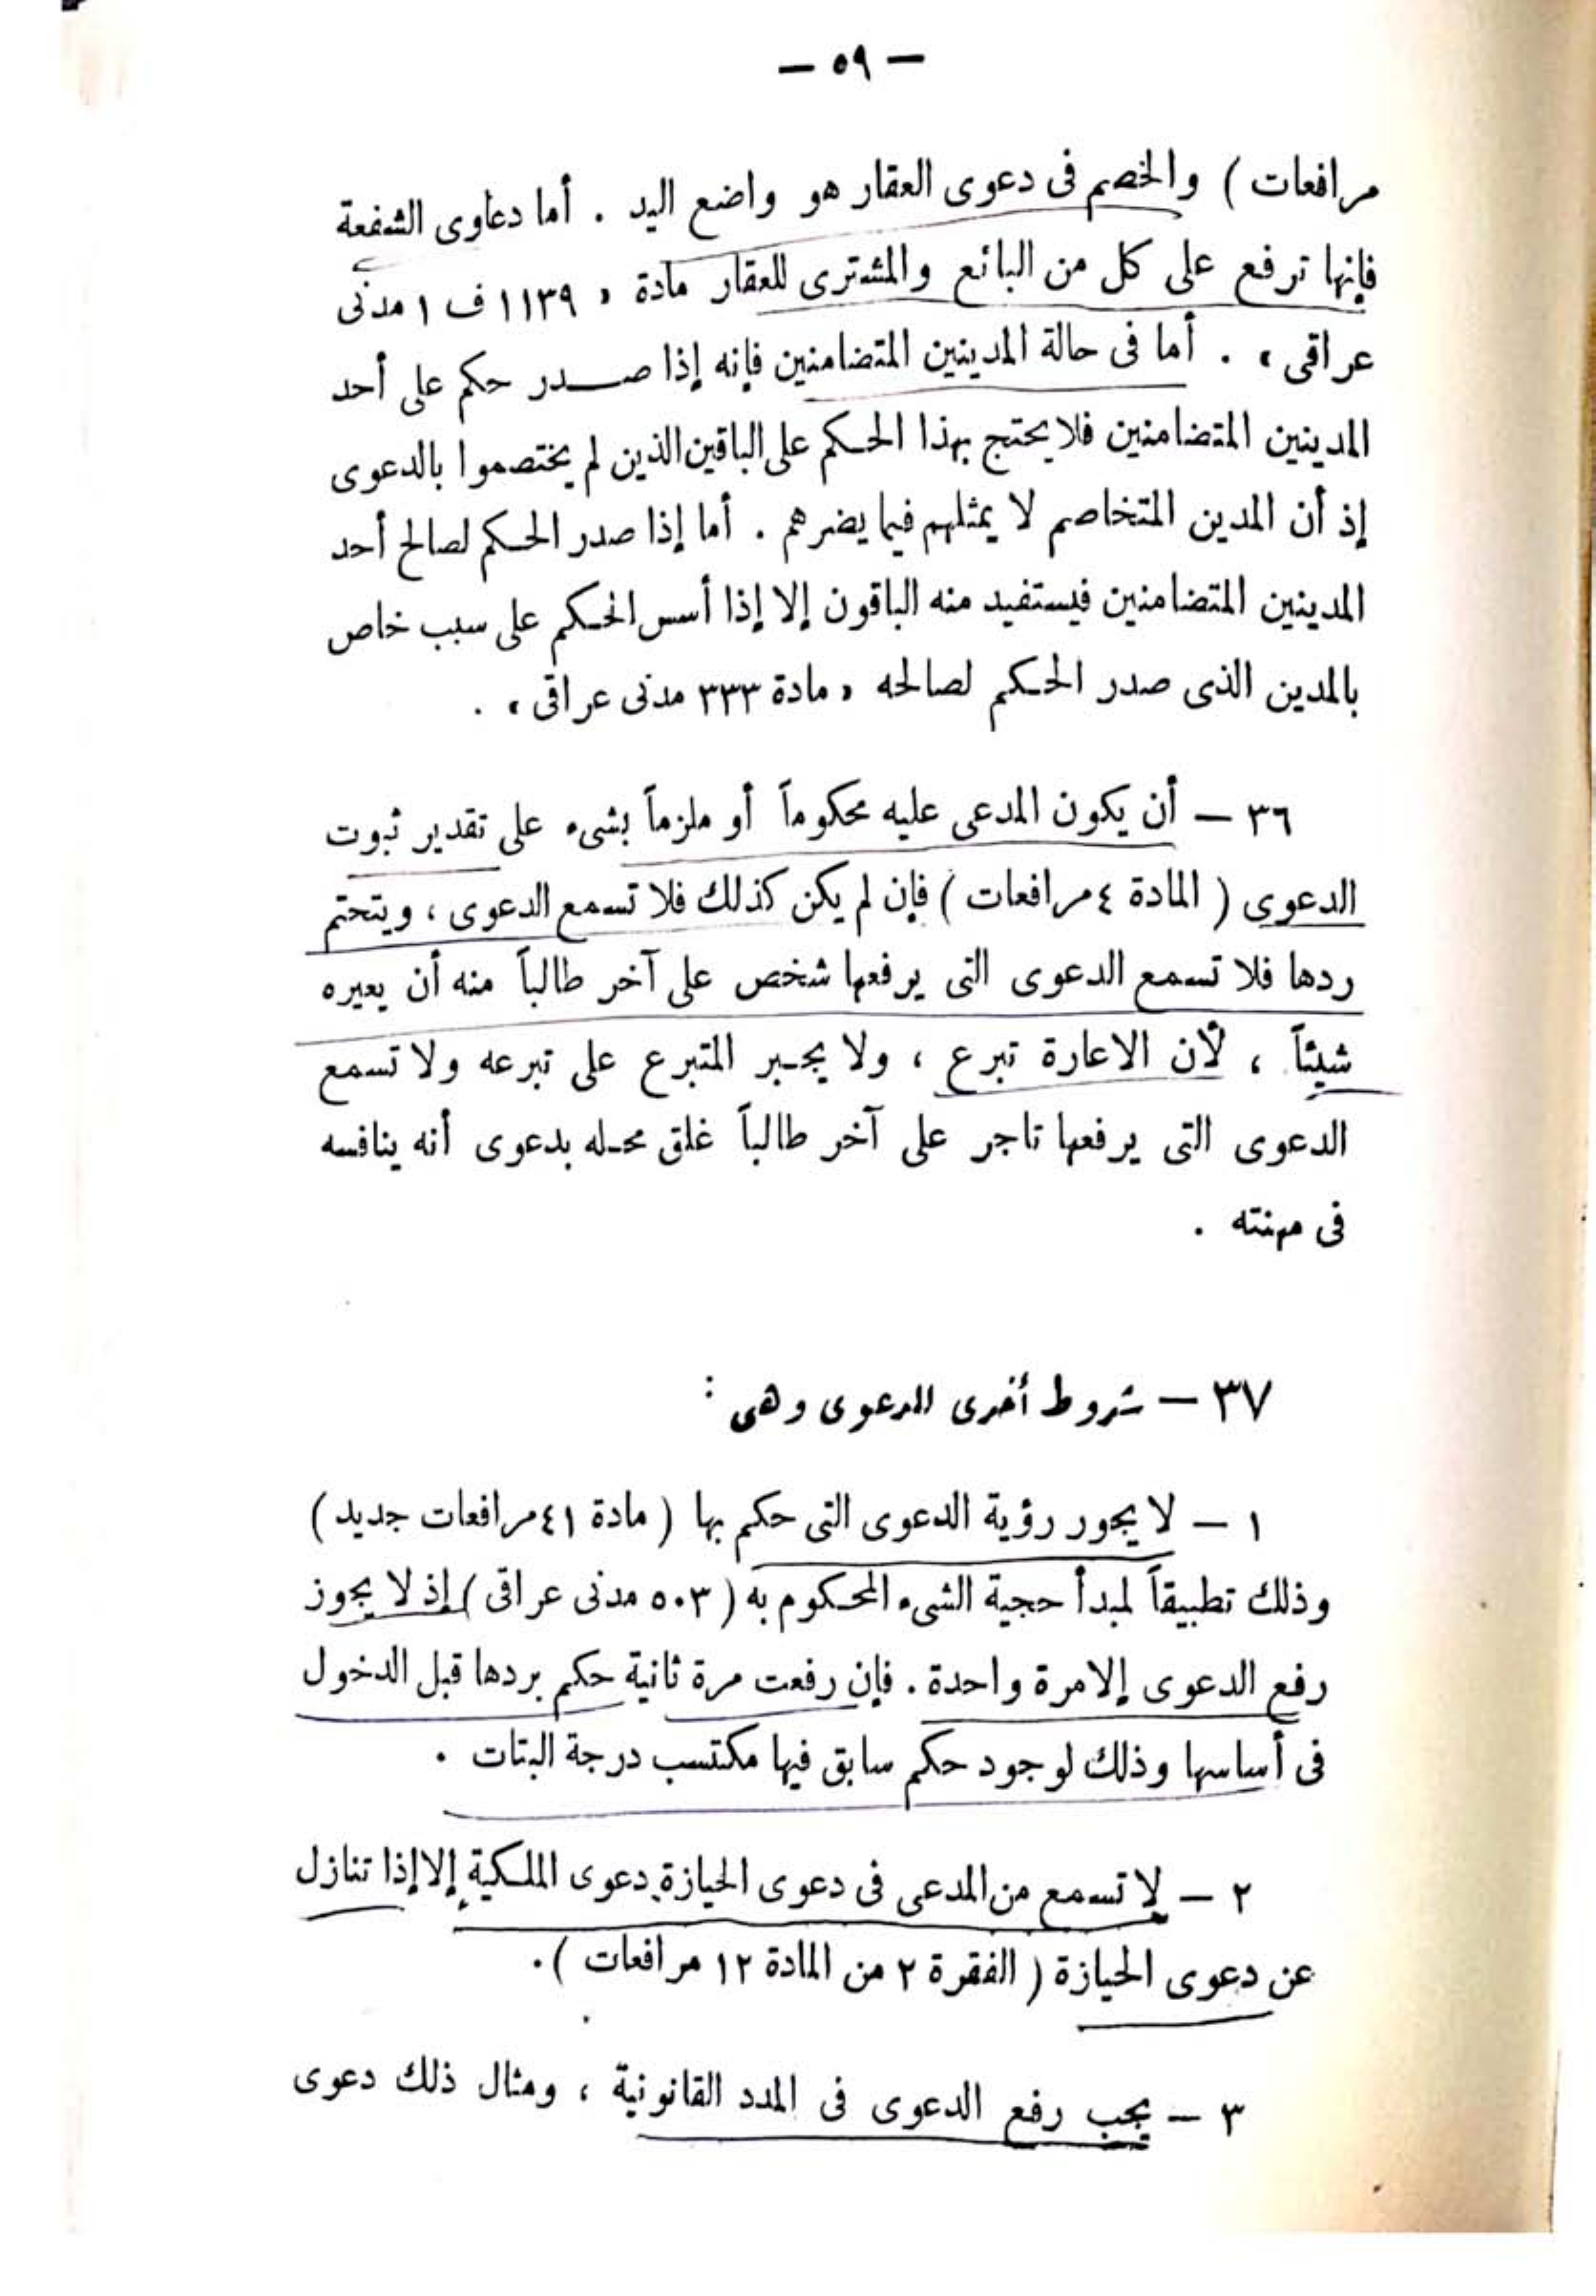 — ٥٩ —
مرافعات ) والخصم فى دعوى العقار هو واضع اليد . أما دعاوى الشفعة
فإنها ترفع على كل من البائع والمشترى للعقار مادة « ١١٣٩ ف ١ مدنى
عراقى » . أما فى حالة المدينين المتضامنين فإنه إذا صدر حكم على أحد
المدينين المتضامنين فلا يحتج بهذا الحكم على الباقين الذين لم يختصموا بالدعوى
إذ أن المدين المتخاصم لا يمثلهم فيما يضرهم . أما إذا صدر الحكم لصالح أحد
المدينين المتضامنين فيستفيد منه الباقون إلا إذا أسس الحكم على سبب خاص
بالمدين الذى صدر الحكم لصالحه « مادة ٣٣٣ مدنى عراقى » .
٣٦ — أن يكون المدعى عليه محكوماً أو ملزماً بشىء على تقدير ثبوت
الدعوى ( المادة ٤ مرافعات ) فإن لم يكن كذلك فلا تسمع الدعوى ، ويتحتم
ردها فلا تسمع الدعوى التى يرفعها شخص على آخر طالباً منه أن يعيره
شيئاً ، لأن الاعارة تبرع ، ولا يجبر المتبرع على تبرعه ولا تسمع
الدعوى التى يرفعها تاجر على آخر طالباً غلق محله بدعوى أنه ينافسه
فى مهنته .
٣٧ — شروط أخرى للدعوى وهى :
١ — لا يجور رؤية الدعوى التى حكم بها ( مادة ٤١ مرافعات جديد )
وذلك تطبيقاً لمبدأ حجية الشىء المحكوم به ( ٥٠٣ مدنى عراقى ) إذ لا يجوز
رفع الدعوى إلا مرة واحدة . فإن رفعت مرة ثانية حكم بردها قبل الدخول
فى أساسها وذلك لوجود حكم سابق فيها مكتسب درجة البتات .
٢ — لا تسمع من المدعى فى دعوى الحيازة دعوى الملكية إلا إذا تنازل
عن دعوى الحيازة ( الفقرة ٢ من المادة ١٢ مرافعات ) .
٣ — يجب رفع الدعوى فى المدد القانونية ، ومثال ذلك دعوى